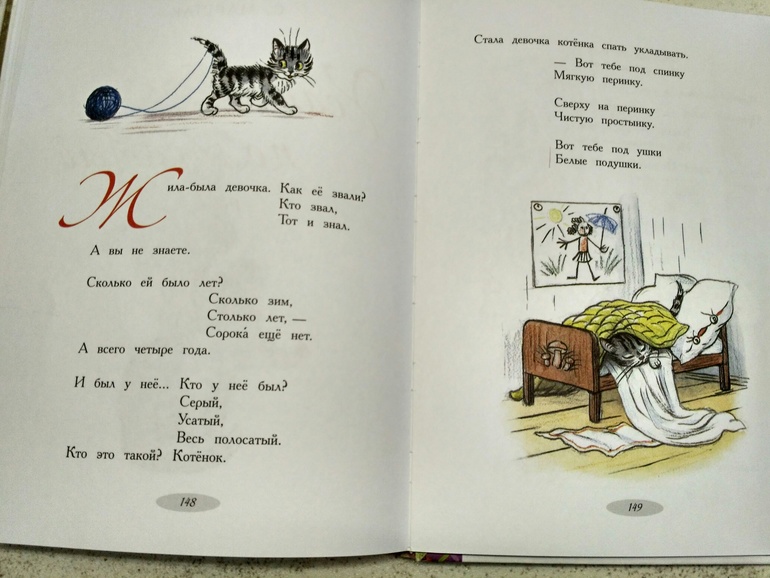 Жила-была девочка. Как её звали?
Кто звал,
Тот и знал.
А вы не знаете.
Сколько ей было лет?
Сколько зим,
Столько лет, —
Сорока́ ещё нет.
А всего четыре года.
И был у неё... Кто у неё был?
Серый,
Усатый,
Весь полосатый.
Кто это такой? Котёнок.
148
Стала девочка котёнка спать укладывать.
— Вот тебе под спинку
Мягкую перинку.
Сверху на перинку
Чистую простынку.
Вот тебе под ушки
Белые подушки.
149